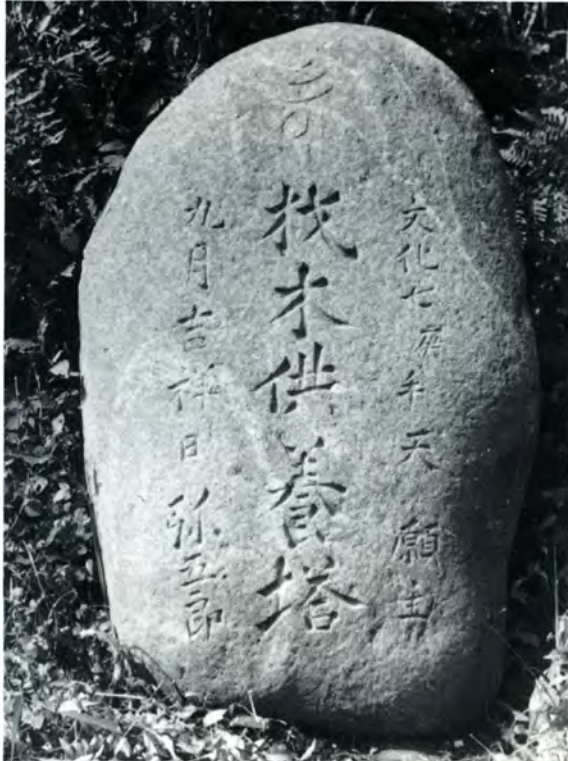 文化七庚午天 願主
栰木供養塔
九月吉祥日 弥五郎